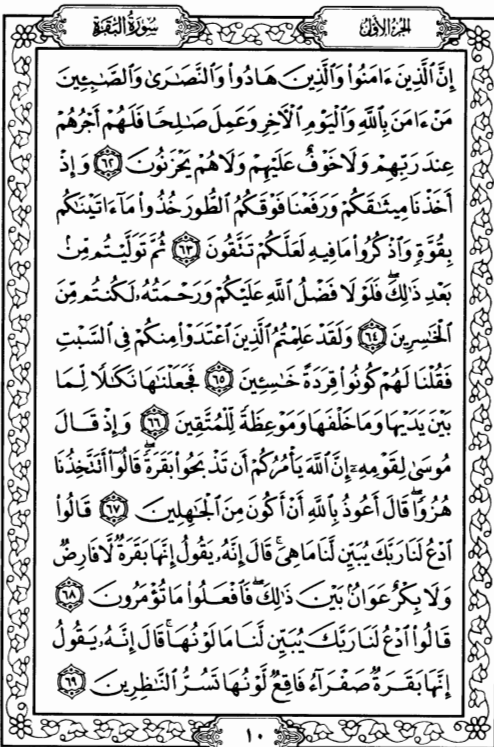 سُورَةُ البَقَرَةِ
الجُزءُ الأَوَّلُ
إِنَّ ٱلَّذِينَ ءَامَنُوا۟ وَٱلَّذِينَ هَادُوا۟ وَٱلنَّصَٰرَىٰ وَٱلصَّٰبِـِٔينَ
مَنْ ءَامَنَ بِٱللَّهِ وَٱلْيَوْمِ ٱلْأَخِرِ وَعَمِلَ صَٰلِحًا فَلَهُمْ أَجْرُهُمْ
عِندَ رَبِّهِمْ وَلَا خَوْفٌ عَلَيْهِمْ وَلَا هُمْ يَحْزَنُونَ ٦٢ وَإِذْ
أَخَذْنَا مِيثَٰقَكُمْ وَرَفَعْنَا فَوْقَكُمُ ٱلطُّورَ خُذُوا۟ مَآ ءَاتَيْنَٰكُم
بِقُوَّةٍ وَٱذْكُرُوا۟ مَا فِيهِ لَعَلَّكُمْ تَتَّقُونَ ٦٣ ثُمَّ تَوَلَّيْتُم مِّنۢ
بَعْدِ ذَٰلِكَ ۖ فَلَوْلَا فَضْلُ ٱللَّهِ عَلَيْكُمْ وَرَحْمَتُهُۥ لَكُنتُم مِّنَ
ٱلْخَٰسِرِينَ ٦٤ وَلَقَدْ عَلِمْتُمُ ٱلَّذِينَ ٱعْتَدَوْا۟ مِنكُمْ فِى ٱلسَّبْتِ
فَقُلْنَا لَهُمْ كُونُوا۟ قِرَدَةً خَٰسِـِٔينَ ٦٥ فَجَعَلْنَٰهَا نَكَٰلًا لِّمَا
بَيْنَ يَدَيْهَا وَمَا خَلْفَهَا وَمَوْعِظَةً لِّلْمُتَّقِينَ ٦٦ وَإِذْ قَالَ
مُوسَىٰ لِقَوْمِهِۦٓ إِنَّ ٱللَّهَ يَأْمُرُكُمْ أَن تَذْبَحُوا۟ بَقَرَةً ۖ قَالُوٓا۟ أَتَتَّخِذُنَا
هُزُوًا ۖ قَالَ أَعُوذُ بِٱللَّهِ أَنْ أَكُونَ مِنَ ٱلْجَٰهِلِينَ ٦٧ قَالُوا۟
ٱدْعُ لَنَا رَبَّكَ يُبَيِّن لَّنَا مَا هِىَ ۚ قَالَ إِنَّهُۥ يَقُولُ إِنَّهَا بَقَرَةٌ لَّا فَارِضٌ
وَلَا بِكْرٌ عَوَانٌۢ بَيْنَ ذَٰلِكَ ۖ فَٱفْعَلُوا۟ مَا تُؤْمَرُونَ ٦٨
قَالُوا۟ ٱدْعُ لَنَا رَبَّكَ يُبَيِّن لَّنَا مَا لَوْنُهَا ۚ قَالَ إِنَّهُۥ يَقُولُ
إِنَّهَا بَقَرَةٌ صَفْرَآءُ فَاقِعٌ لَّوْنُهَا تَسُرُّ ٱلنَّٰظِرِينَ ٦٩
١٠